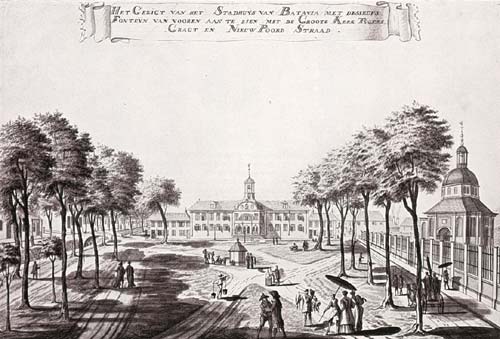 HET GESIGT VAN HET STADHUYS VAN BATAVIA MET DESSELFS
FONTEYN VAN VOOREN AAN TE SIEN MET DE GROOTE KERK TYGERS
GRAGT EN NIEUW POORD STRAAD.